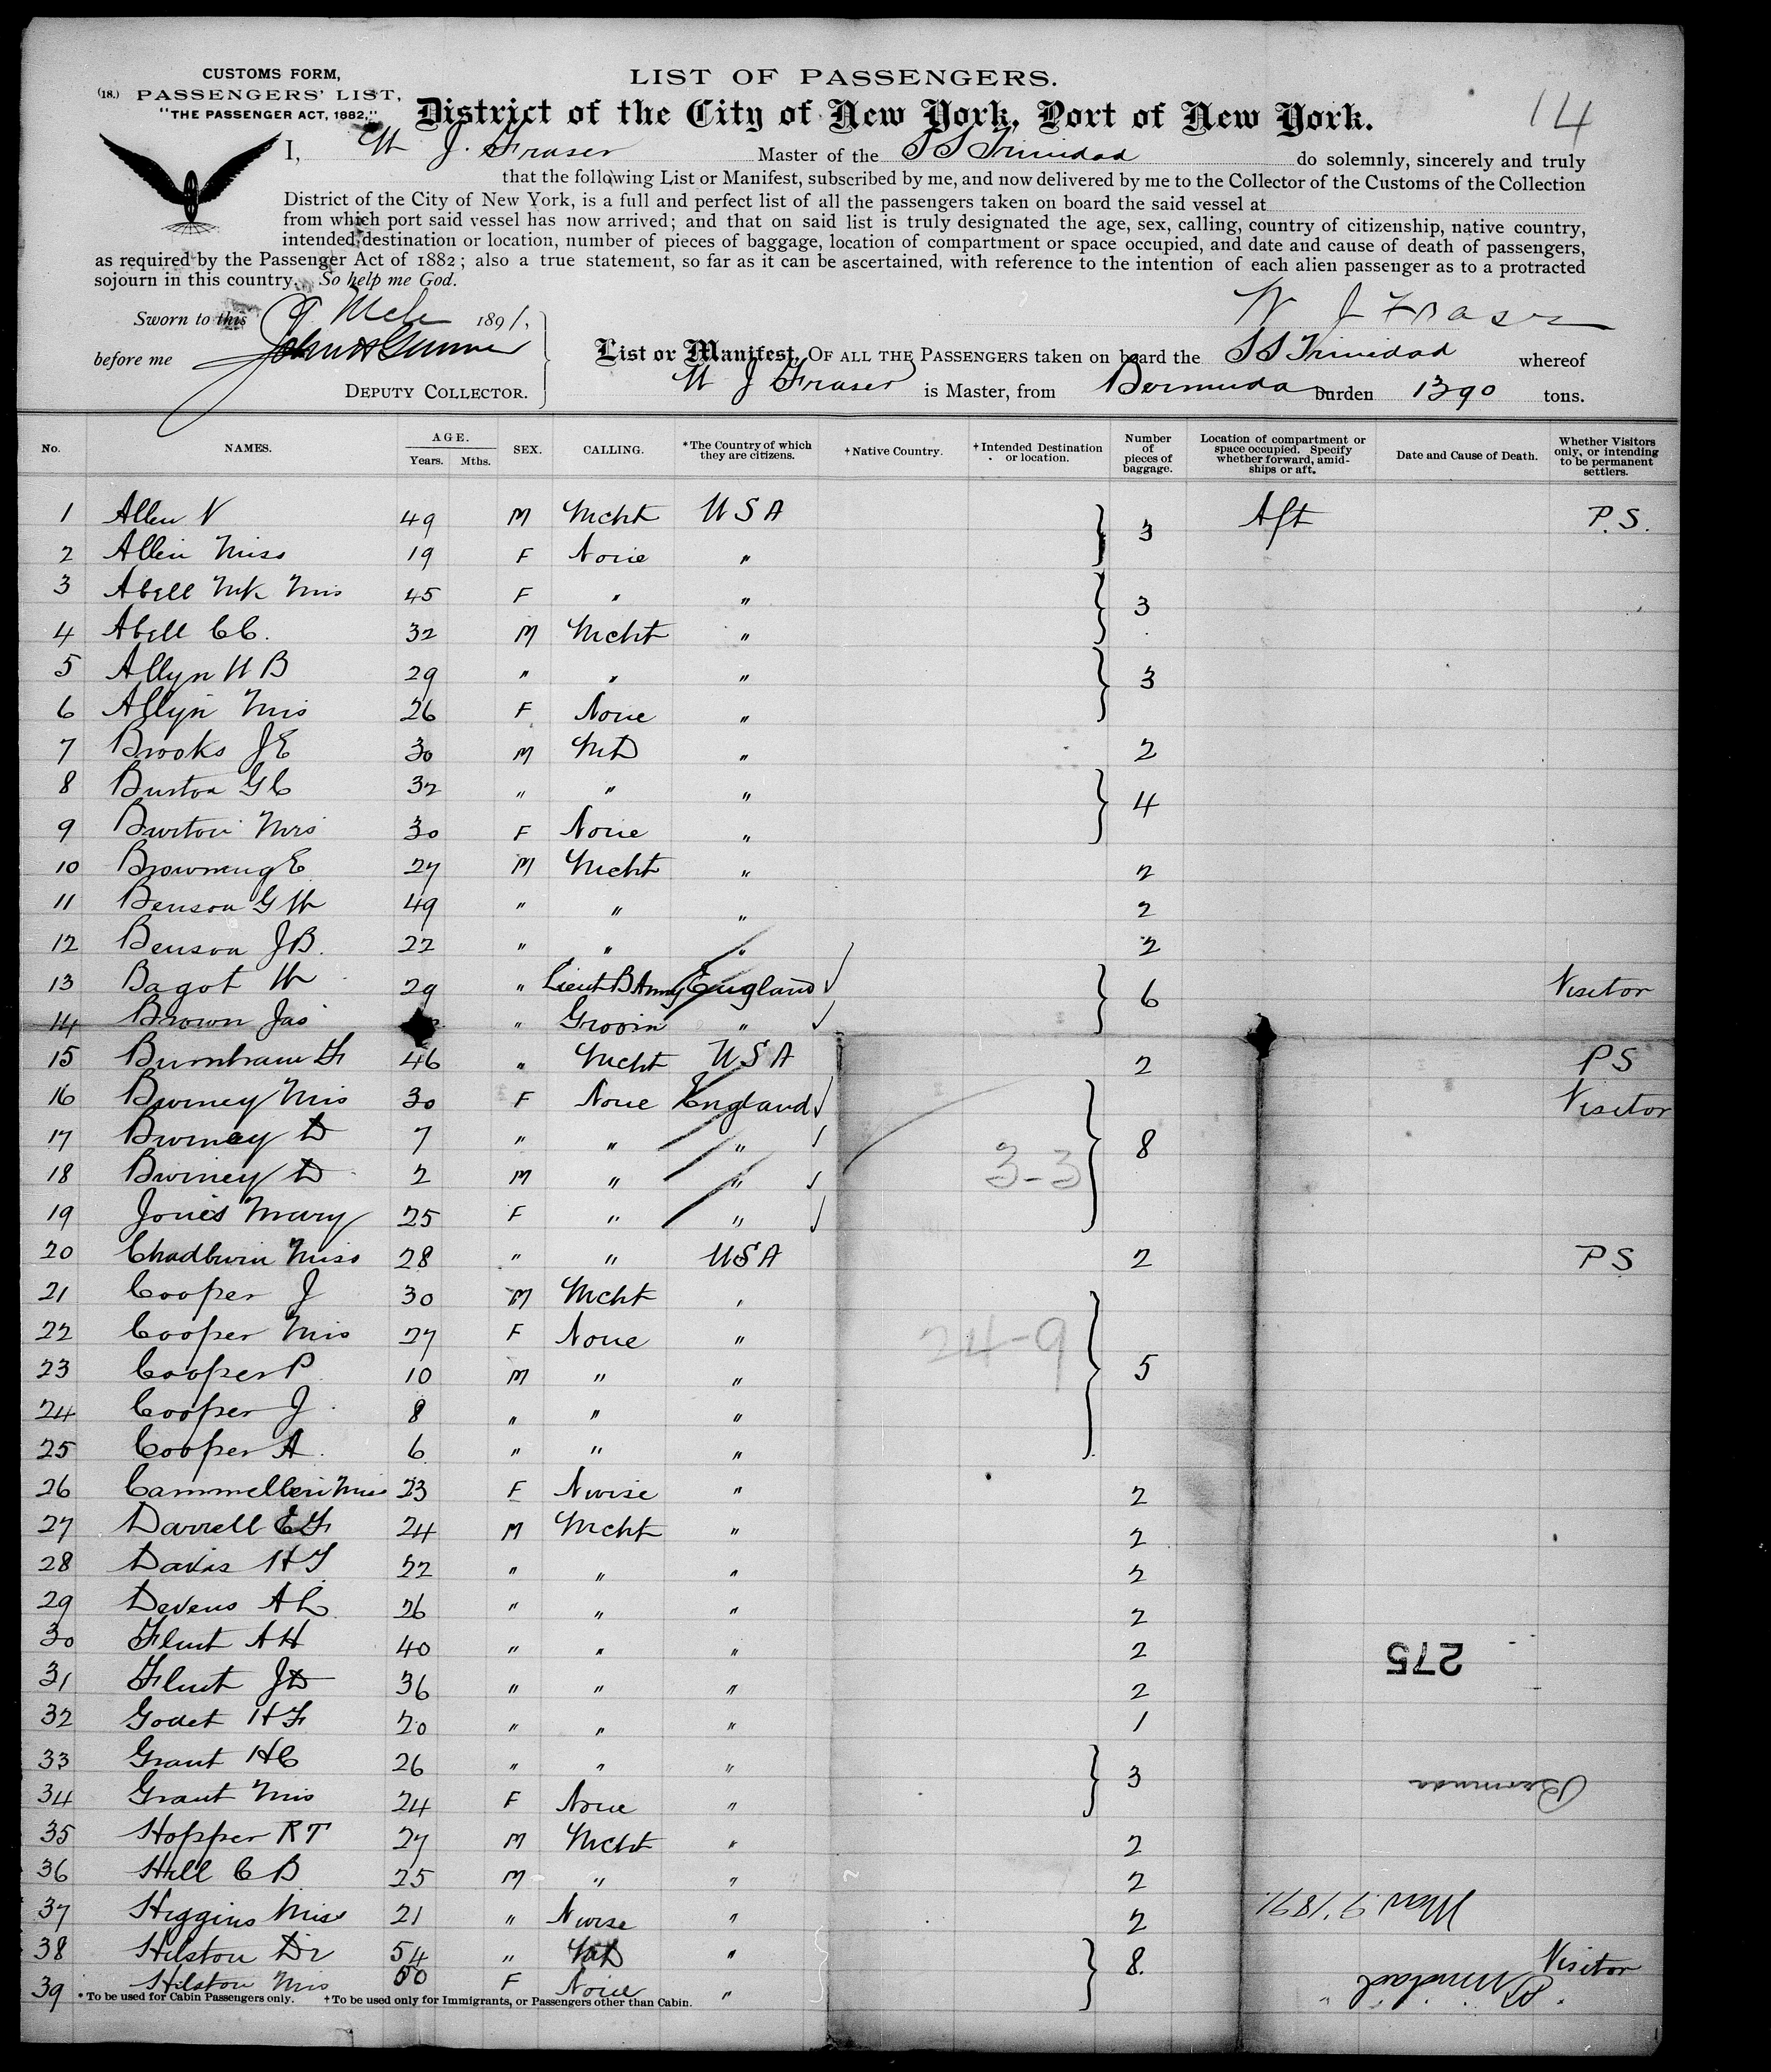 CUSTOMS FORM,
(18.) PASSENGERS' LIST,
"THE PASSENGER ACT, 1882,"
LIST OF PASSENGERS.
District of the City of New York, Port of New York.
14
I, W J. Fraser Master of the SS Trinidad do solemnly, sincerely and truly
that the following List or Manifest, subscribed by me, and now delivered by me to the Collector of the Customs of the Collection
District of the City of New York, is a full and perfect list of all the passengers taken on board the said vessel at
from which port said vessel has now arrived; and that on said list is truly designated the age, sex, calling, country of citizenship, native country,
intended destination or location, number of pieces of baggage, location of compartment or space occupied, and date and cause of death of passengers,
as required by the Passenger Act of 1882; also a true statement, so far as it can be ascertained, with reference to the intention of each alien passenger as to a protracted
sojourn in this country. So help me God.
W J Fraser
Sworn to this 9 Mch 1891,
before me
DEPUTY COLLECTOR.
List or Manifest, OF ALL THE PASSENGERS taken on board the SS Trinidad whereof
W J Fraser is Master, from Bermuda burden 1390 tons.
No. NAMES. AGE. Years. Mths. SEX. CALLING. *The Country of which they are citizens. †Native Country. †Intended Destination or location. Number of pieces of baggage. Location of compartment or space occupied. Specify whether forward, amidships or aft. Date and Cause of Death. Whether Visitors only, or intending to be permanent settlers.
1 Allen N 49 M Mcht USA 3 Aft P.S.
2 Allen Miss 19 F None "
3 Abell Mrs 45 F " " 3
4 Abell CC. 32 M Mcht "
5 Allyn W B 29 " " " 3
6 Allyn Mrs 26 F None "
7 Brooks J E 30 M MD " 2
8 Burton G C 32 " " " 4
9 Burton Mrs 30 F None "
10 Browning E 27 M Mcht " 2
11 Benson G W 49 " " " 2
12 Benson J B. 22 " " " 2
13 Bagot W 29 " Lieut B Army England 6 Visitor
14 Brown Jas " Groom "
15 Burnham F 46 " Mcht USA 2 PS
16 Burney Mrs 30 F None England 8 Visitor
17 Burney D 7 " " "
18 Burney D 2 M " " 3-3
19 Jones Mary 25 F " "
20 Chadburn Miss 28 " " USA 2 PS
21 Cooper J 30 M Mcht " 5
22 Cooper Mrs 27 F None " 24-9
23 Cooper P 10 M " "
24 Cooper J 8 " " "
25 Cooper A. 6 " " "
26 Cammelleri Miss 23 F Nurse " 2
27 Darrell E F 24 M Mcht " 2
28 Davis H T 22 " " " 2
29 Devens A L 26 " " " 2
30 Flint A H 40 " " " 2
31 Flint J D 36 " " " 2
275
32 Godet H F 20 " " " 1
33 Grant H C 26 " " " 3
Bermuda
34 Grant Mrs 24 F None "
35 Hopper R T 27 M Mcht " 2
36 Hill C B 25 M " " 2
Mar 9, 1891.
37 Higgins Miss 21 " Nurse " 2
38 Hilston Dr 54 " MD " 8. Visitor
39 Hilston Mrs 50 F None "
SS Trinidad
* To be used for Cabin Passengers only. †To be used only for Immigrants, or Passengers other than Cabin.